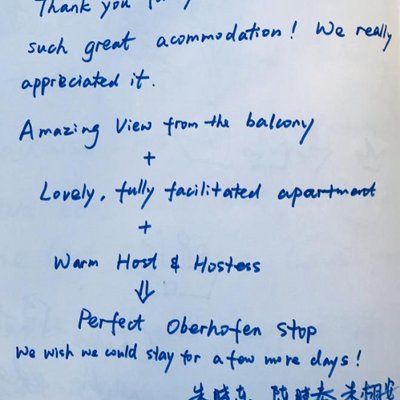 Thank you
such great acommodation! We really
appreciated it.
Amazing View from the balcony
+
Lovely, fully facilitated apartment
+
Warm Host & Hostess
⇓
Perfect Oberhofen Stop
We wish we could stay for a few more days!